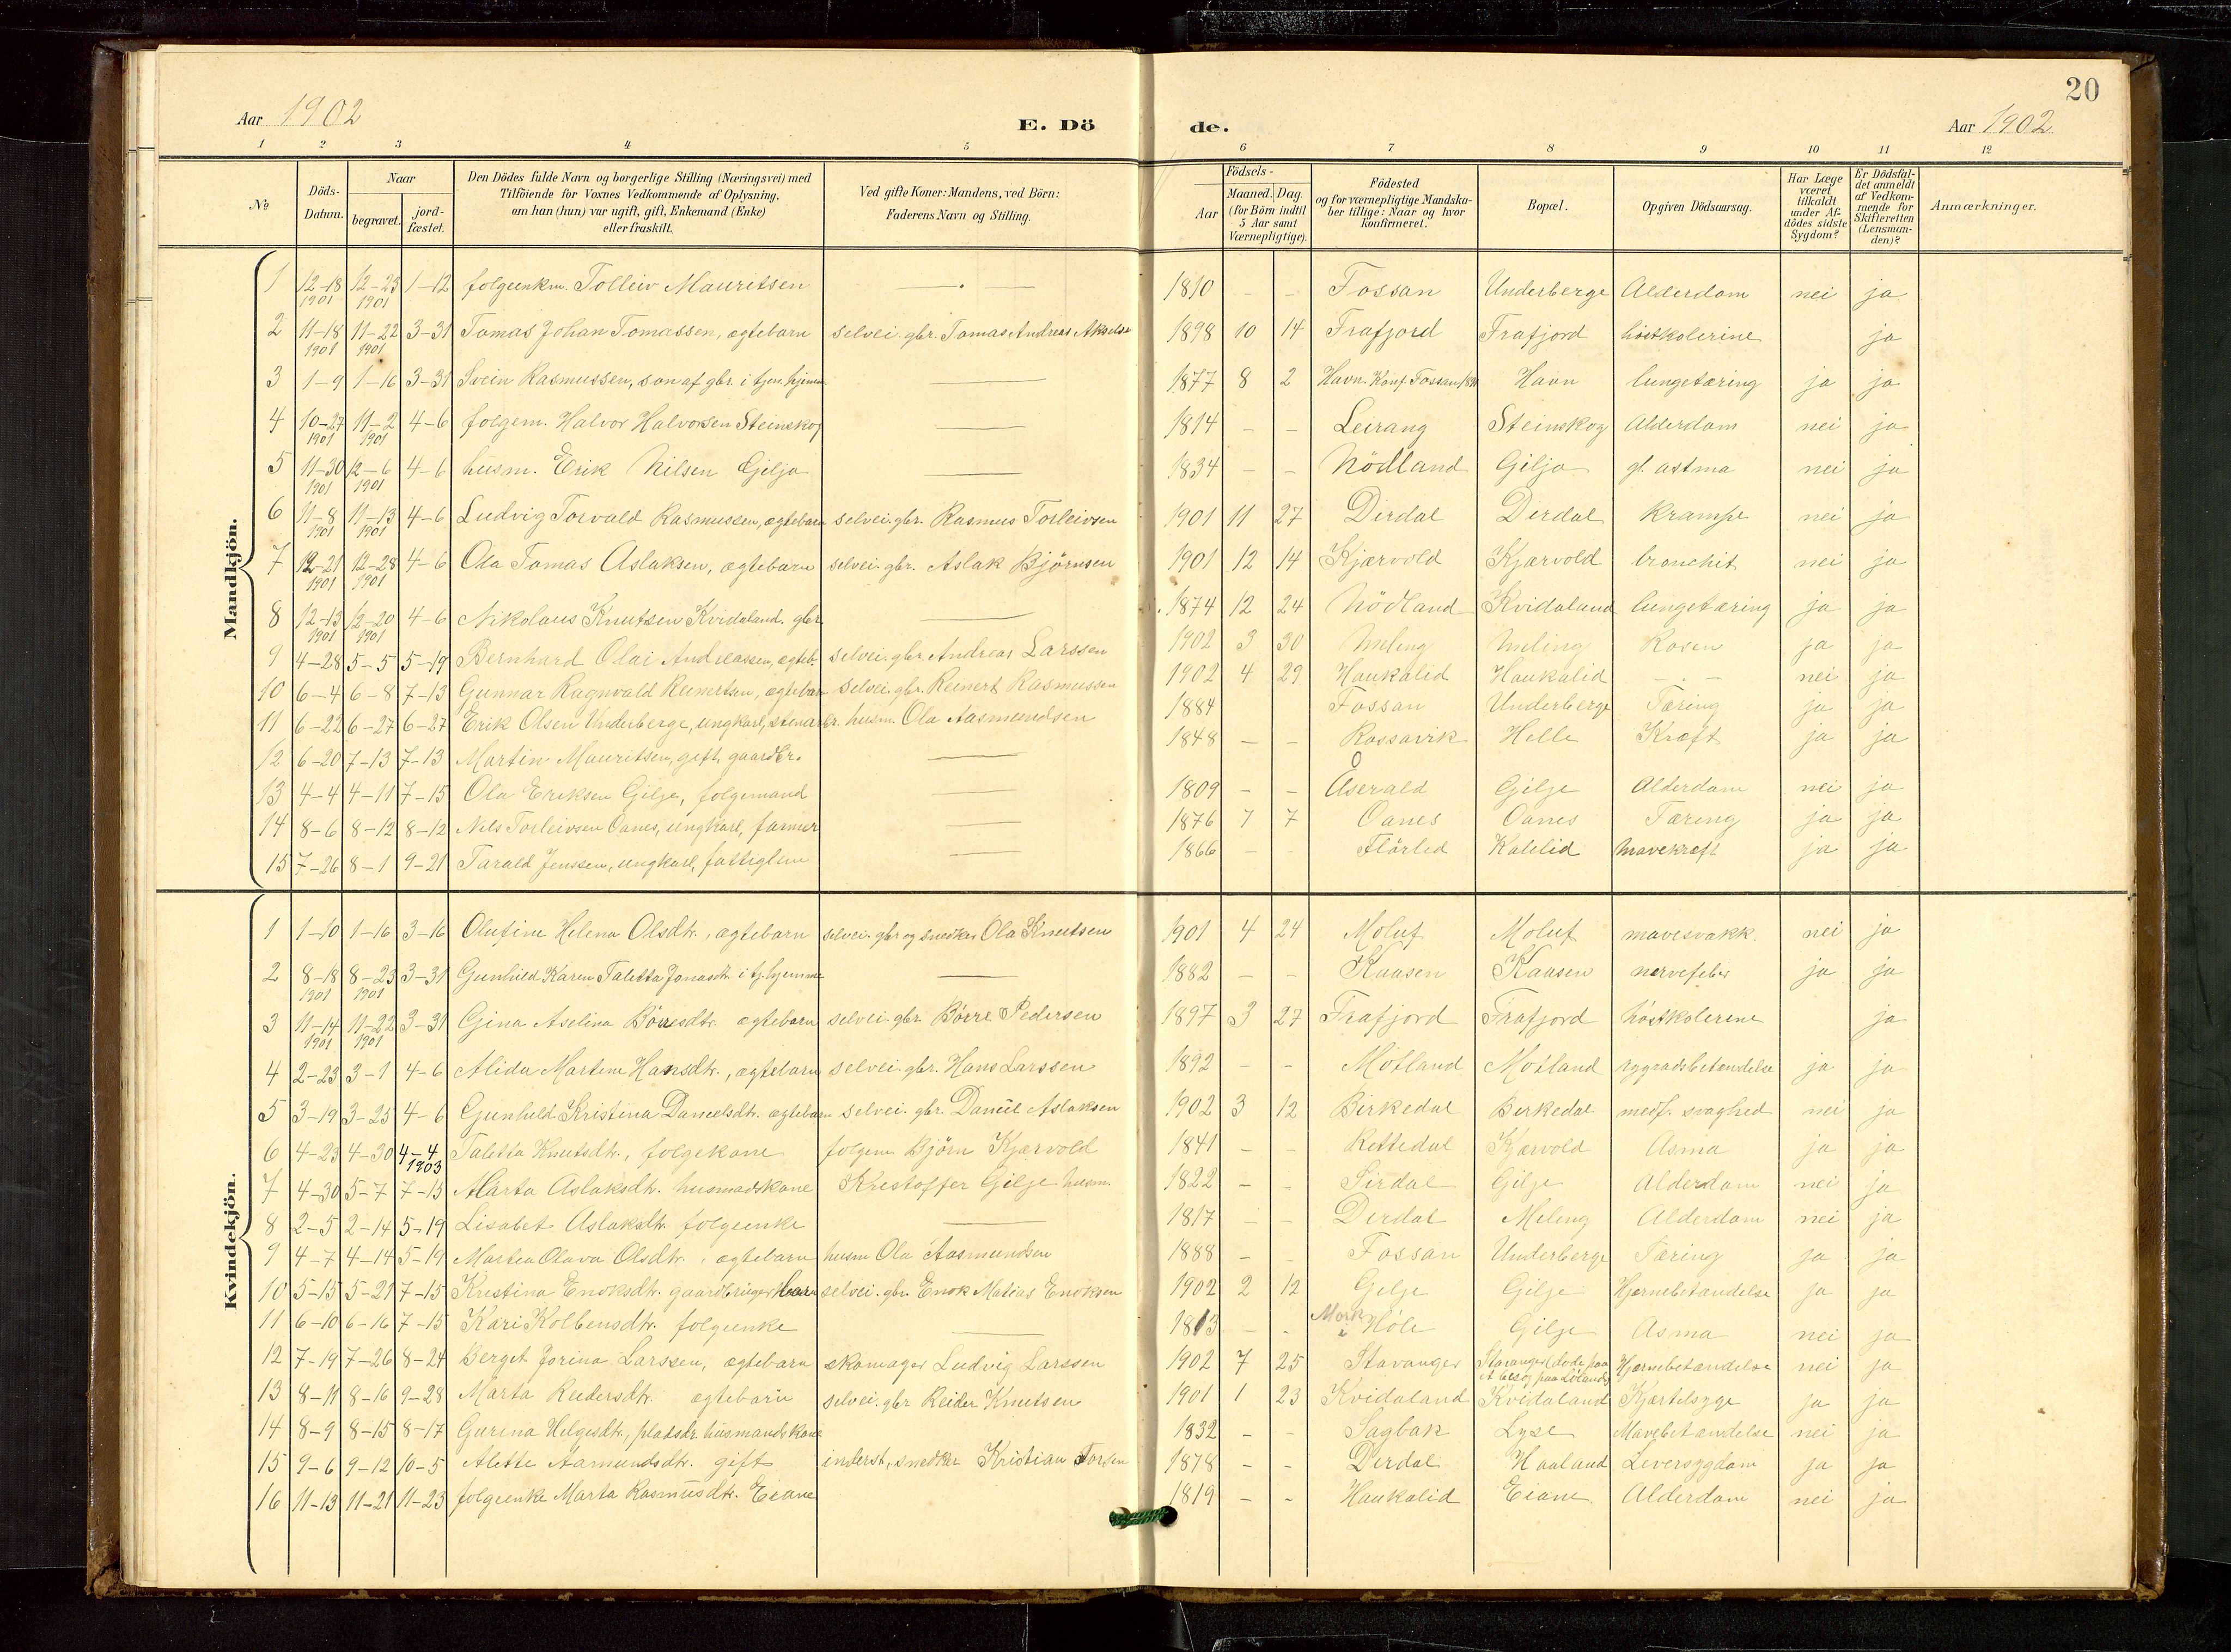 20
Aar 1902
E. Dö
de.
Aar 1902.
1 2 3 4 5 6 7 8 9 10 11 12
№
Döds-Datum.
Naar
begravet.
jord-fæstet.
Den Dödes fulde Navn og borgerlige Stilling (Næringsvei) med
Tilföiende for Voxnes Vedkommende af Oplysning,
om han (hun) var ugift, gift, Enkemand (Enke)
eller fraskilt.
Ved gifte Koner: Mandens, ved Börn:
Faderens Navn og Stilling.
Födsels-
Aar
Maaned. Dag.
(for Börn indtil
5 Aar samt
Værnepligtige).
Födested
og for værnepligtige Mandska-
ber tillige: Naar og hvor
konfirmeret.
Bopæl.
Opgiven Dödsaarsag.
Har Læge
været
tilkaldt
under Af-
dödes sidste
Sygdom?
Er Dödsfal-
det anmeldt
af Vedkom-
mende for
Skifteretten
(Lensman-
den)?
Anmærkninger.
Mandkjön.
1 12-18 1901 12-23 1901 1-12 folgeenkm. Tolleiv Mauritsen — 1810 - - Fossan Underberge Alderdom nei ja
2 11-18 1901 11-22 1901 3-31 Tomas Johan Tomassen, ægtebarn selvei. gbr. Tomas Andreas 1898 10 14 Frafjord Frafjord höstkolerine ja
3 1-9 1-16 3-31 Svein Rasmussen, søn af gbr. i tjen. hjemme — 1877 8 2 Havn. Konf. Fossan Havn lungetæring ja ja
4 10-27 1901 11-2 1901 4-6 folgem. Halvor Halvorsen Steinskog — 1814 - - Leirang Steinskog Alderdom nei ja
5 11-30 1901 12-6 1901 4-6 husm. Erik Nilsen Gilja — 1834 - - Nödland Gilja gl. astma nei ja
6 11-8 1901 11-13 1901 4-6 Ludvig Torvald Rasmussen, ægtebarn selvei. gbr. Rasmus Torleivsen 1901 11 27 Dirdal Dirdal Krampe nei ja
7 12-21 1901 12-28 1901 4-6 Ola Tomas Aslaksen, ægtebarn selvei. gbr. Aslak Björnsen 1901 12 14 Kjærvold Kjærvold bronchit nei ja
8 12-13 1901 12-20 1901 4-6 Nikolaus Knutsen Kvidaland. gbr. — 1874 12 24 Nödland Kvidaland lungetæring ja ja
9 4-28 5-5 5-19 Bernhard Olai Andreassen, ægteb. selvei. gbr. Andreas Larssen 1902 3 30 Meling Meling Rosen ja ja
10 6-4 6-8 7-13 Gunnar Ragnvald Reinertsen, ægtebarn selvei. gbr. Reinert Rasmussen 1902 4 29 Haukalid Haukalid - . - nei ja
11 6-22 6-27 6-27 Erik Olsen Underberge, ungkarl, stenarbr. husm. Ola Aasmundsen 1884 Fossan Underberge Tæring ja ja
12 6-20 7-13 7-13 Martin Mauritsen, gift, gaardbr. — 1848 - - Rossavik Helle Kræft ja ja
13 4-4 4-11 7-15 Ola Eriksen Gilje, folgemand — 1809 - - Åserald Gilje Alderdom nei ja
14 8-6 8-12 8-12 Nils Torleivsen Oanes, ungkarl, farmer — 1876 7 7 Oanes Oanes Tæring ja ja
15 7-26 8-1 9-21 Tarald Jenssen, ungkarl, fattiglem — 1866 - - Flörled Kalelid Mavekræft ja ja
Kvindekjön.
1 1-10 1-16 3-16 Olufine Helena Olsdtr., ægtebarn selvei. gbr og snedker Ola Knutsen 1901 4 24 Moluf Moluf mavesvakk. nei ja
2 8-18 1901 8-23 1901 3-31 Gunhild Karen Taletta Jonasdtr. i tj. hjemme — 1882 - - Kaasen Kaasen nervefeber ja ja
3 11-14 1901 11-22 1901 3-31 Gina Aselina Börresdtr. ægtebarn selvei. gbr. Börre Pedersen 1897 3 27 Frafjord Frafjord höstkolerine ja
4 2-23 3-1 4-6 Alida Martine Hansdtr., ægtebarn selvei. gbr. Hans Larssen 1892 - - Motland Motland rygradsbetændelse ja ja
5 3-19 3-25 4-6 Gunhild Kristina Danielsdtr. ægtebarn selvei. gbr. Daniel Aslaksen 1902 3 12 Birkedal Birkedal medf. svaghed nei ja
6 4-23 4-30 4-4 1903 Taletta Knutsdtr., folgekone folgem Björn Kjærvold 1841 - - Rettedal Kjærvold Asma ja ja
7 4-30 5-7 7-15 Marta Aslaksdtr. husmadskone Kristoffer Gilje husm. 1822 - - Sirdal Gilje Alderdom nei ja
8 2-5 2-14 5-19 Lisabet Aslaksdtr. folgeenke — 1817 - - Dirdal Meling Alderdom nei ja
9 4-7 4-14 5-19 Martea Olava Olsdtr., ægtebarn husm Ola Aasmundsen 1888 - Fossan Underberge Tæring ja ja
10 5-15 5-21 7-15 Kristina Enoksdtr. gaardbruger barn selvei. gbr. Enok Matias Enoksen 1902 2 12 Gilje Gilje Hjernebetændelse ja ja
11 6-10 6-16 7-15 Kari Kolbensdtr. folgeenke — 1813 - - Mork i Höle Gilje Asma nei ja
12 7-19 7-26 8-24 Berget Jorina Larssen, ægtebarn skomager Ludvig Larssen 1902 7 25 Stavanger Stavanger (döde paa et besög paa Löland) Hjernebetændelse nei ja
13 8-11 8-16 9-28 Marta Reidersdtr. ægtebarn selvei. gbr Reider Knutsen 1901 1 23 Kvidaland Kvidaland Kjertelsyge ja ja
14 8-9 8-15 8-17 Gurina Helgesdtr., pladsdr. husmandskone 1832 - - Sagbak Lyse Mavebetændelse nei ja
15 9-6 9-12 10-5 Alette Aamundsdtr. gift inderst, snedker Kristian Torsen 1878 - - Dirdal Haaland Leversygdom ja ja
16 11-13 11-21 11-23 folgeenke Marta Rasmusdtr. Eiane 1819 - - Haukalid Eiane. Alderdom nei ja